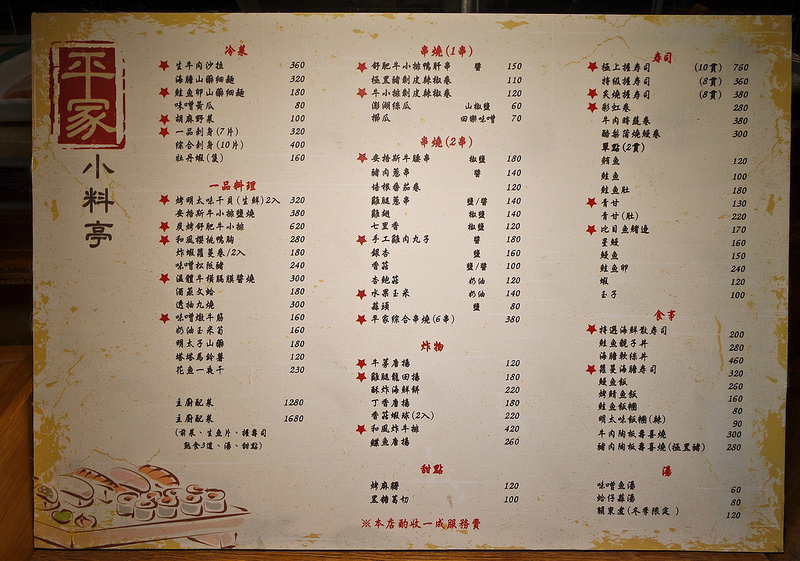 平家
小料亭
冷菜
生牛肉沙拉 360
海膽山藥細麵 320
鮭魚卵山藥細麵 180
味噌黃瓜 80
胡麻野菜 100
一品刺身(7片) 320
綜合刺身(10片) 400
牡丹蝦(隻) 160
一品料理
烤明太味干貝(生鮮)2入 320
安格斯牛小排鹽燒 380
炭烤舒肥牛小排 620
和風櫻桃鴨胸 280
炸蝦蘿蔓卷/2入 180
味噌松阪豬 240
溫體牛橫膈膜醬燒 300
酒蒸文蛤 180
透抽丸燒 300
味噌燉牛筋 160
奶油玉米筍 160
明太子山藥 180
塔塔馬鈴薯 120
花魚一夜干 230
主廚配菜 1280
主廚配菜 1680
(前菜、生魚片、握壽司
熟食3道、湯、甜點)
串燒(1串)
舒肥牛小排鴨肝串 醬 150
極黑豬剝皮辣椒卷 110
牛小排剝皮辣椒卷 120
澎湖絲瓜 山椒鹽 60
櫛瓜 田樂味噌 70
串燒(2串)
安格斯牛腰串 椒鹽 180
豬肉蔥串 醬 140
培根番茄卷 120
雞腿蔥串 鹽/醬 140
雞翅 椒鹽 120
七里香 椒鹽 120
手工雞肉丸子 醬 180
銀杏 鹽 160
香菇 鹽/醬 100
杏鮑菇 奶油 120
水果玉米 奶油 140
蒜頭 鹽 80
平家綜合串燒(6串) 380
炸物
牛蒡唐揚 120
雞腿龍田揚 180
酥炸海鮮餅 220
丁香唐揚 180
香菇蝦球(2入) 220
和風炸牛排 420
鰈魚唐揚 260
甜點
烤麻糬 120
黑糖葛切 100
※本店酌收一成服務費
壽司
極上握壽司 (10貫) 760
特級握壽司 (8貫) 360
炙燒握壽司 (8貫) 380
彩虹卷 280
牛肉時蔬卷 380
酪梨蒲燒鰻卷 300
單點(2貫)
鮪魚 120
鮭魚 100
鮭魚肚 180
青甘 130
青甘(肚) 220
比目魚鰭邊 170
星鰻 160
鰻魚 150
鮭魚卵 240
蝦 120
玉子 100
食事
特選海鮮散壽司 200
鮭魚親子丼 280
海膽軟絲丼 460
蘿蔓海膽壽司 320
鰻魚飯 260
烤鯖魚飯 160
鮭魚飯糰 80
明太味飯糰(辣) 90
牛肉陶板壽喜燒 300
豬肉陶板壽喜燒(極黑豬) 280
湯
味噌魚湯 60
蛤仔蒜湯 80
關東煮(冬季限定) 120